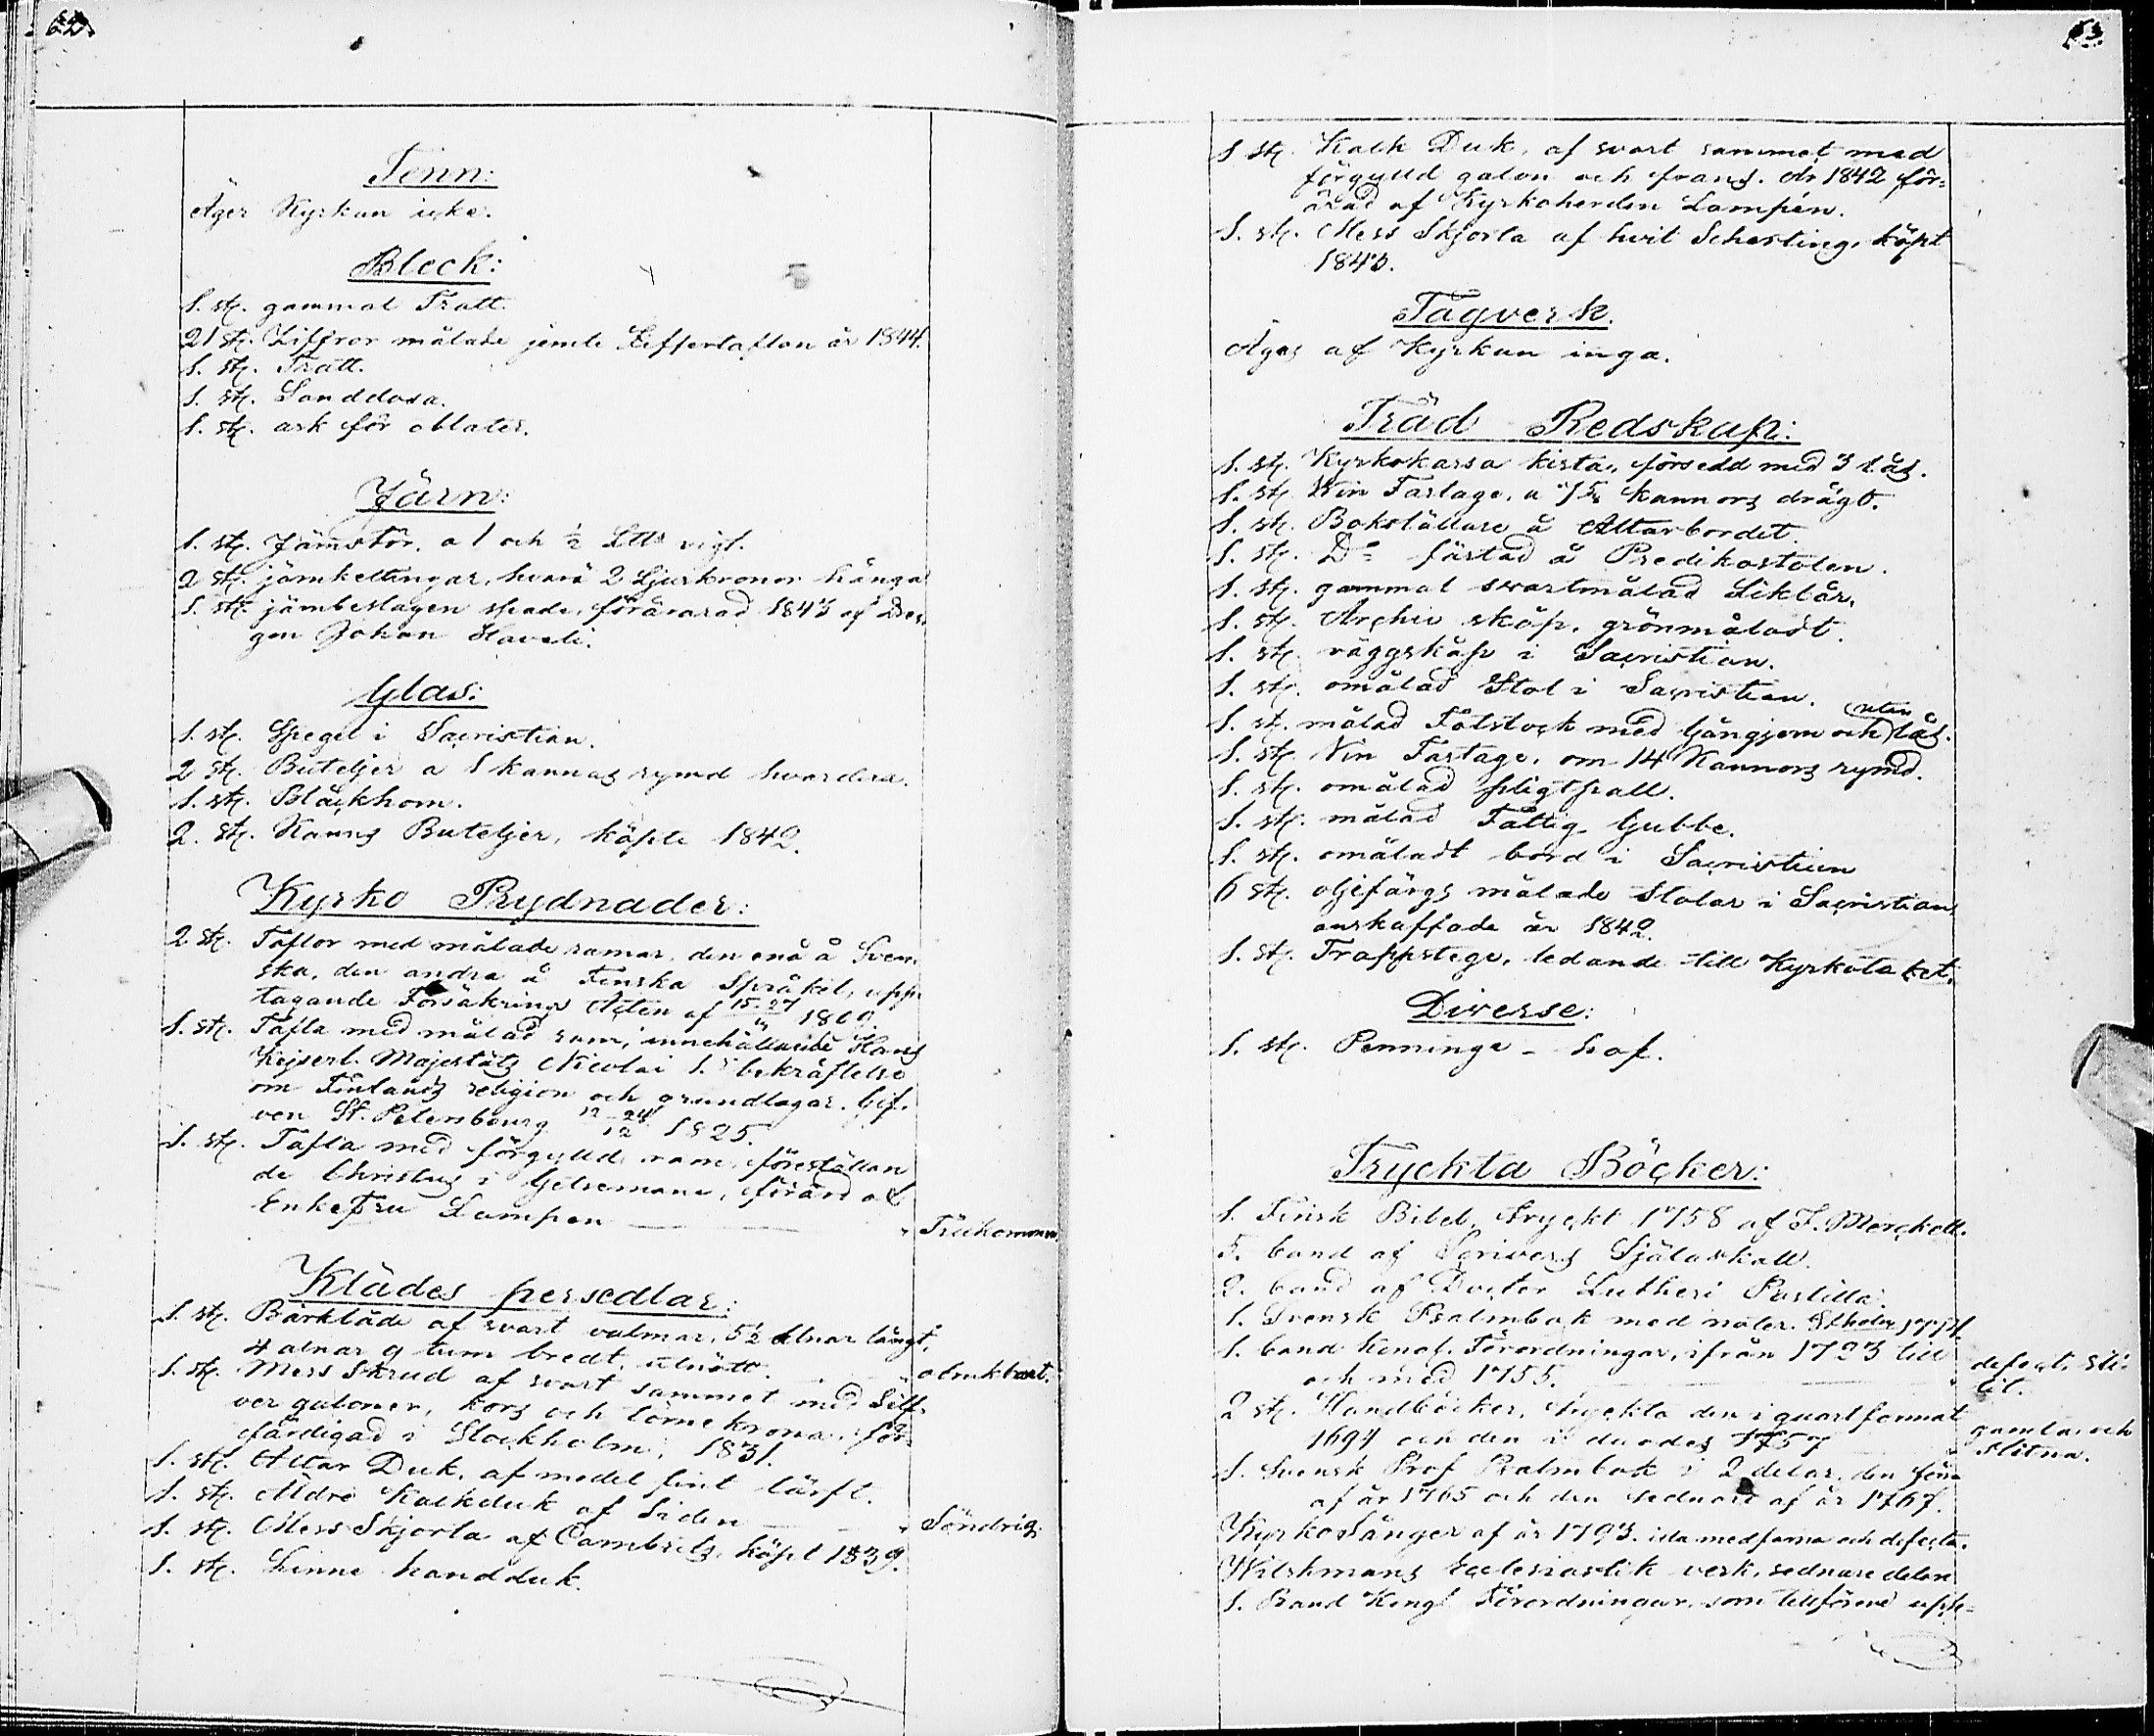 62.
Tenn:
Äger Kyrkan icke.
Bleck:
1. st. gammal Tratt.
21 st. Ziffror målade jemte Zeffertaflan år 1844.
1. st. Tratt.
1. st. Sanddosa.
1. st. ask för oblater.
Järn:
1. st. Järnstör. a 1 och ½ vigt.
2 st. järnkettingar, hvarå 2 Ljuskronor hänga
1. st. järnbeslagen spade, förärarad 1843 af
gen Johan
Glas:
1. st. Spegel i Sacristian.
2 st. Buteljer a 1 kannas rymd hvardera.
1. st. Bläckhorn.
2. st. Kanns Buteljer, köpte 1842.
Kyrko Prydnader:
2 st. Taflor med målade ramar, den ena å Sven
ska, den andra å Finska Språket, upp
tagande Försäkrings Acten af 15-27 1809.
1. st. Tafla med målad ram, innehållande Hans
Kejserl. Majestäts Nicolai 1. bekräftelse
om Finlands religion och grundlagar. Gif.
ven St. Petersbourg 12-24/12 1825.
1. st. Tafla med förgylld ram, föreställan
de Christus i Getsemane, förärd af
Enkefru Lampen
Klädes persedlar:
1. st. Bårkläde af svart valmar, 5½ alnar långt,
4 alnar 9 tum bredt. utnött. obrukbart.
1. st. Mess Skrud af svart sammet med Silf
ver galoner, kors och törnekrona, för
färdigad i Stockholm, 1831.
1. st. Altar Duk, af medel fint lärft.
1. st. Äldre Kalkduk af Siden Söndrig.
1. st. Mess Skjorta af Cambrits, köpt 1839.
1. st. Linne handduk.
63.
1 st. Kalk Duk, af svart sammet med
förgylld galon och frans. År 1842 för-
ärad af Kyrkoherden Lampén.
1. st. Mess Skjorta af hvit Schesting, köpt
1843.
Tagverk.
Äges af Kyrkan inga.
Träd Redskap:
1. st. Kyrkokassa kista, försedd med 3 lås.
1. st. Win Fastage, a 15 kannors drägt.
1. st. Bokställare å Altarbordet.
1. st. D:o fästad å Predikostolen.
1. st. gammal svartmålad Liklår.
1. st. Archiv skåp, grönmåladt.
1. st. väggskåp i Sacristian.
1. st. omålad Stol i Sacristian.
1. st. målad Fotstock med gångjern och utan lås.
1. st. Vin Fastage, om 14 Kannors rymd.
1. st. omålad pligtpall.
1. st. målad Fattig Gubbe.
1. st. omåladt bord i Sacristian
6 st. oljefärgs målade Stolar i Sacristian
anskaffade år 1842.
1. st. Trappstege, ledande till Kyrkotaket.
Diverse:
1. st. Penninge - haf.
Tryckta Böcker:
1. Finsk Bibel, tryckt 1758 af J. Merckell.
5. band af Scrivers Själaskatt.
2. band af Doctor Lutheri Postilla.
1. Svensk Psalmbok med noter. Stholm
1. band Konol. Förordningar, ifrån 1723 till
och med 1755. defect. sli-
tit.
2 st. Handböcker, tryckta den i quart format
1694 och den i duodes 1757 gamla och
slitna.
1. Svensk Prof Psalmbok i 2 delar, den förra
af år 1765 och den sednare af år 1767.
Kyrko Sånger af år 1793. illa medfarna och defecta.
Wilskmans Ecclesiastik verk, sednare delen
1. Band Kongl Förordningar, som tillförene upp-